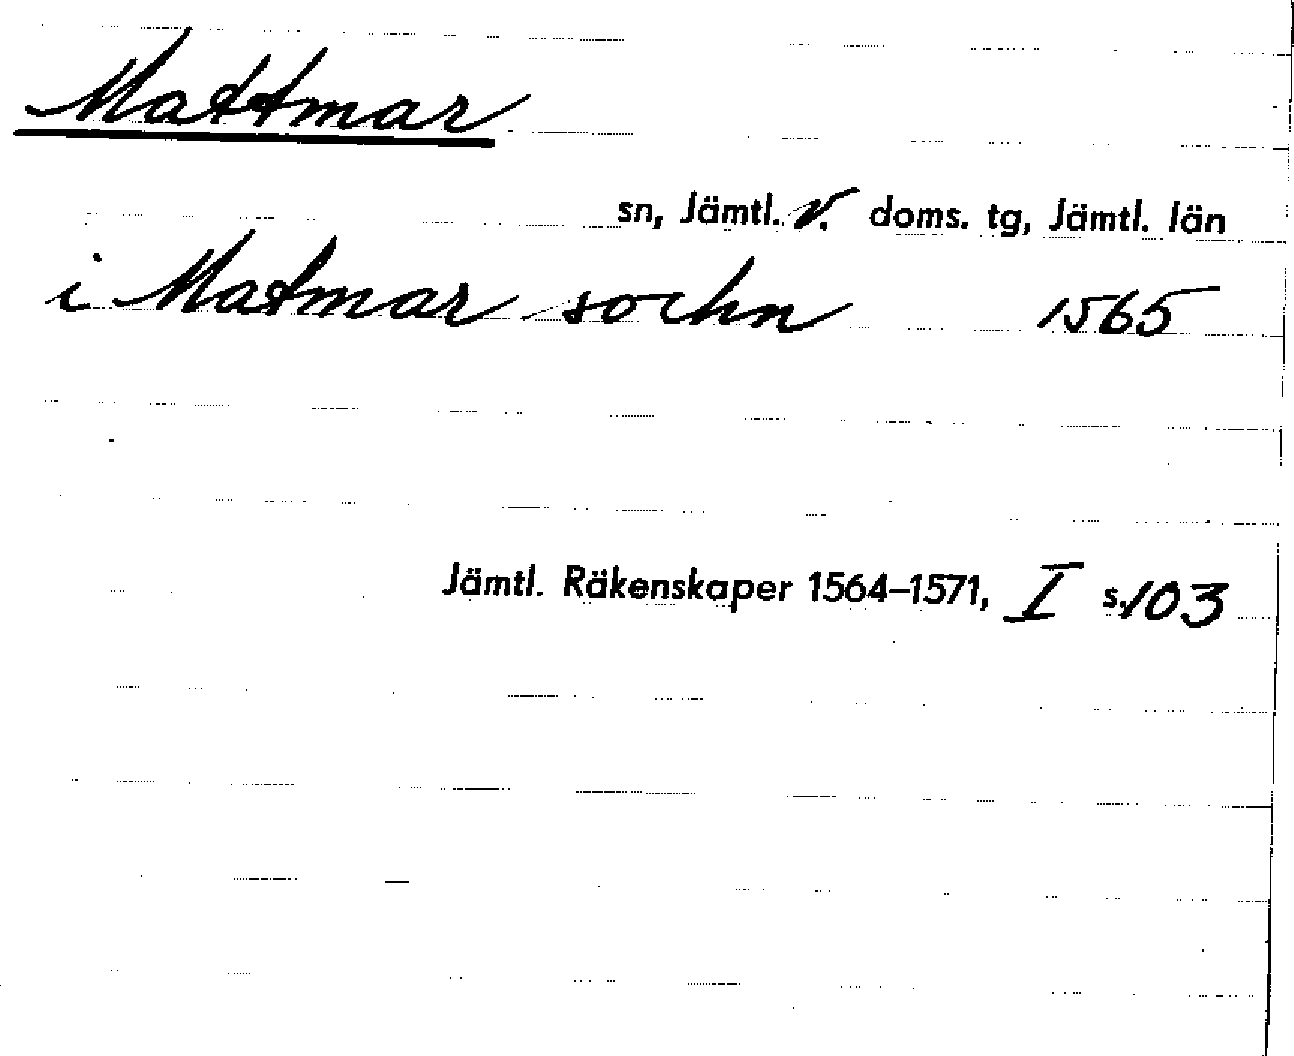 Mattmar
sn, Jämtl. v. doms. tg, Jämtl. län
i Matmar sochn 1565
Jämtl. Räkenskaper 1564–1571, I s. 103